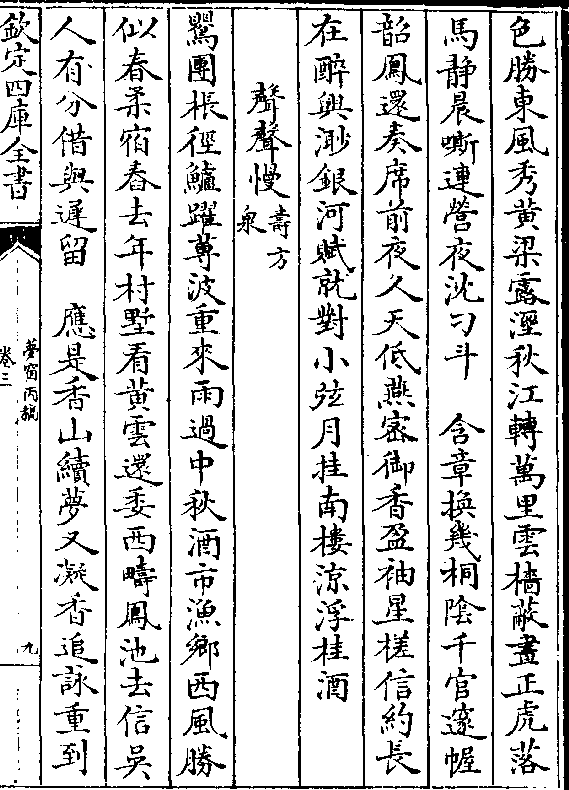 色勝東風秀黄粱露溼秋江轉萬里雲檣蔽晝正虎落
馬静晨嘶連營夜沈刁斗　含章換幾桐陰千官邃幄
韶鳳還奏席前夜久天低燕密御香盈袖星槎信約長
在醉興渺銀河賦就對小弦月挂南樓涼浮桂酒
聲聲慢 壽方泉
鸎團棖徑鱸躍蓴波重來雨過中秋酒市漁鄉西風勝
似春柔宿舂去年村墅看黄雲還委西疇鳳池去信吳
人有分借與遲留　應是香山續夢又凝香追詠重到
欽定四庫全書
夢窗丙稿
卷三
九